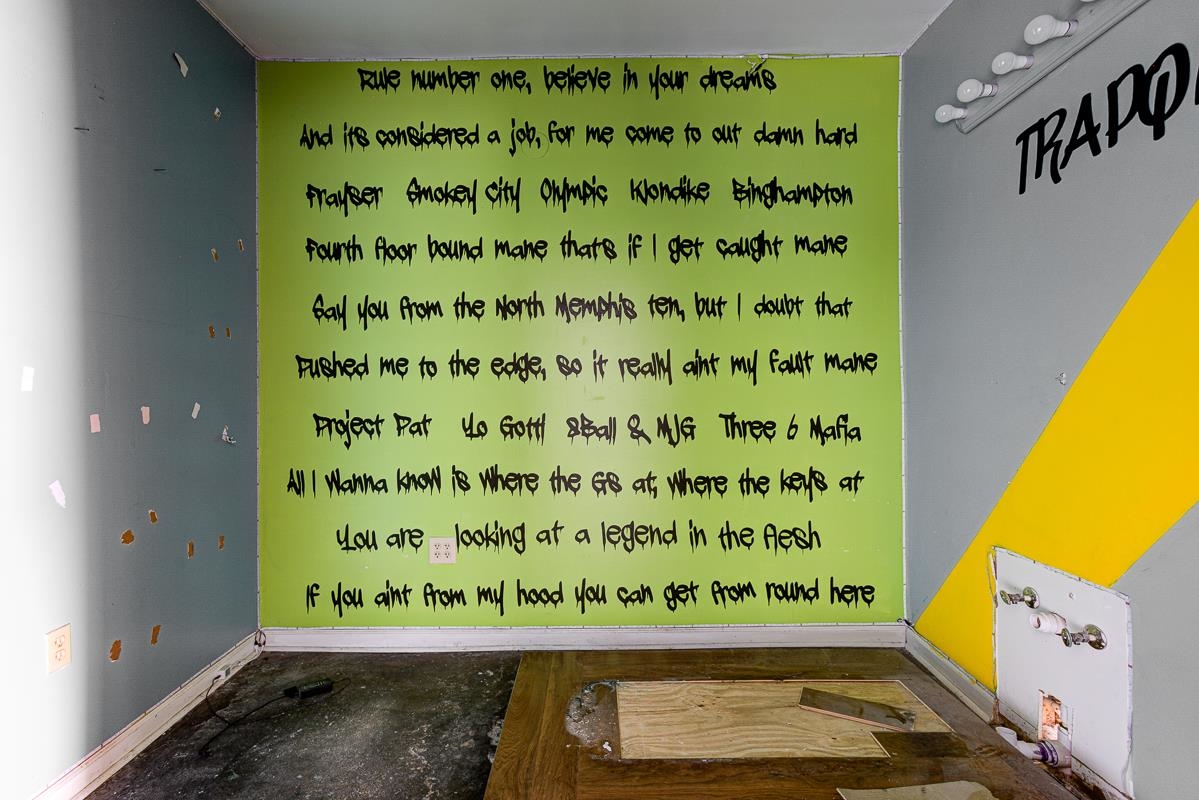 Rule number one, believe in your dreams
And its considered a job, for me come to out damn hard
Frayser Smokey City Olympic Klondike Binghampton
Fourth floor bound mane that's if I get caught mane
Say you from the North Memphis ten, but I doubt that
Pushed me to the edge, so it really aint my fault mane
Project Pat Yo Gotti 8Ball & MJG Three 6 Mafia
All I Wanna know is Where the GS at, Where the keys at
You are looking at a legend in the flesh
If you aint from my hood you can get from round here